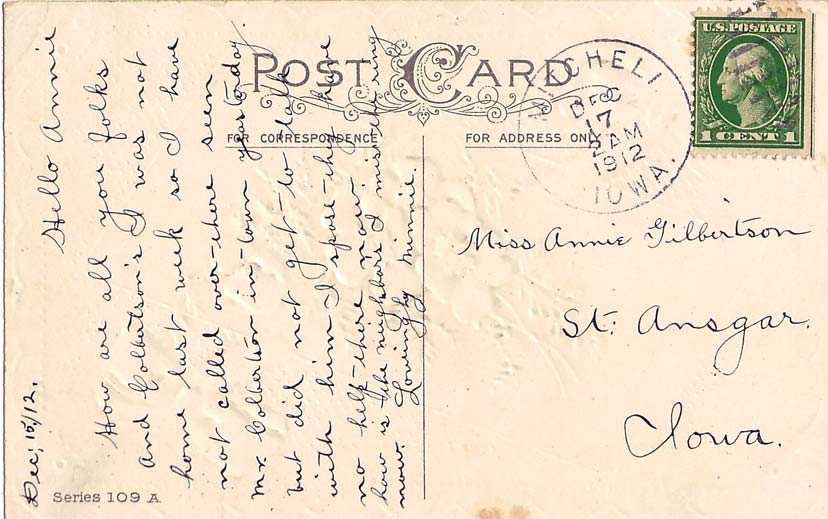 POST CARD
FOR CORRESPONDENCE
FOR ADDRESS ONLY
U.S. POSTAGE
1 CENT 1
MITCHELL
DEC
17
AM
1912
IOWA.
Dec, 15/12.
Hello Annie
How are all you folks
and Colbertson's I was not
home last week so I have
not called over there seen
Mr. Colbertson in town yesterday.
but did not get to talk
with him I spose they have
no help there now.
how is the neighbors I miss the ring
now. Lovingly Minnie.
Miss Annie Gilbertson
St. Ansgar.
Iowa.
Series 109 A